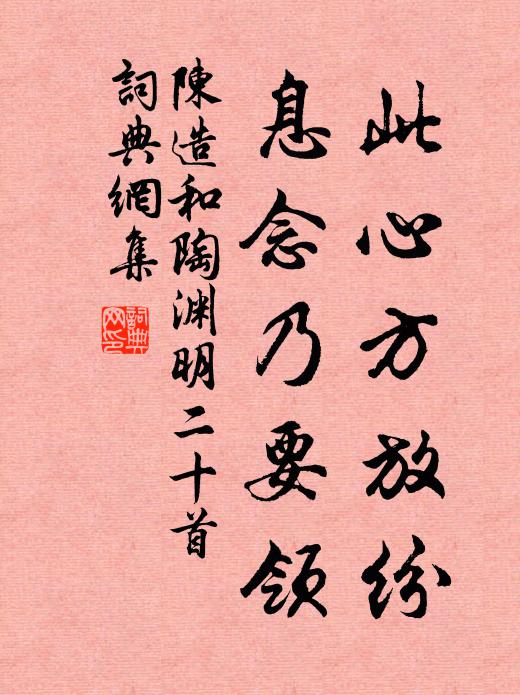 此心方放紛
息念乃要領
陳造和陶淵明二十首
詞典網集
詞典
网印